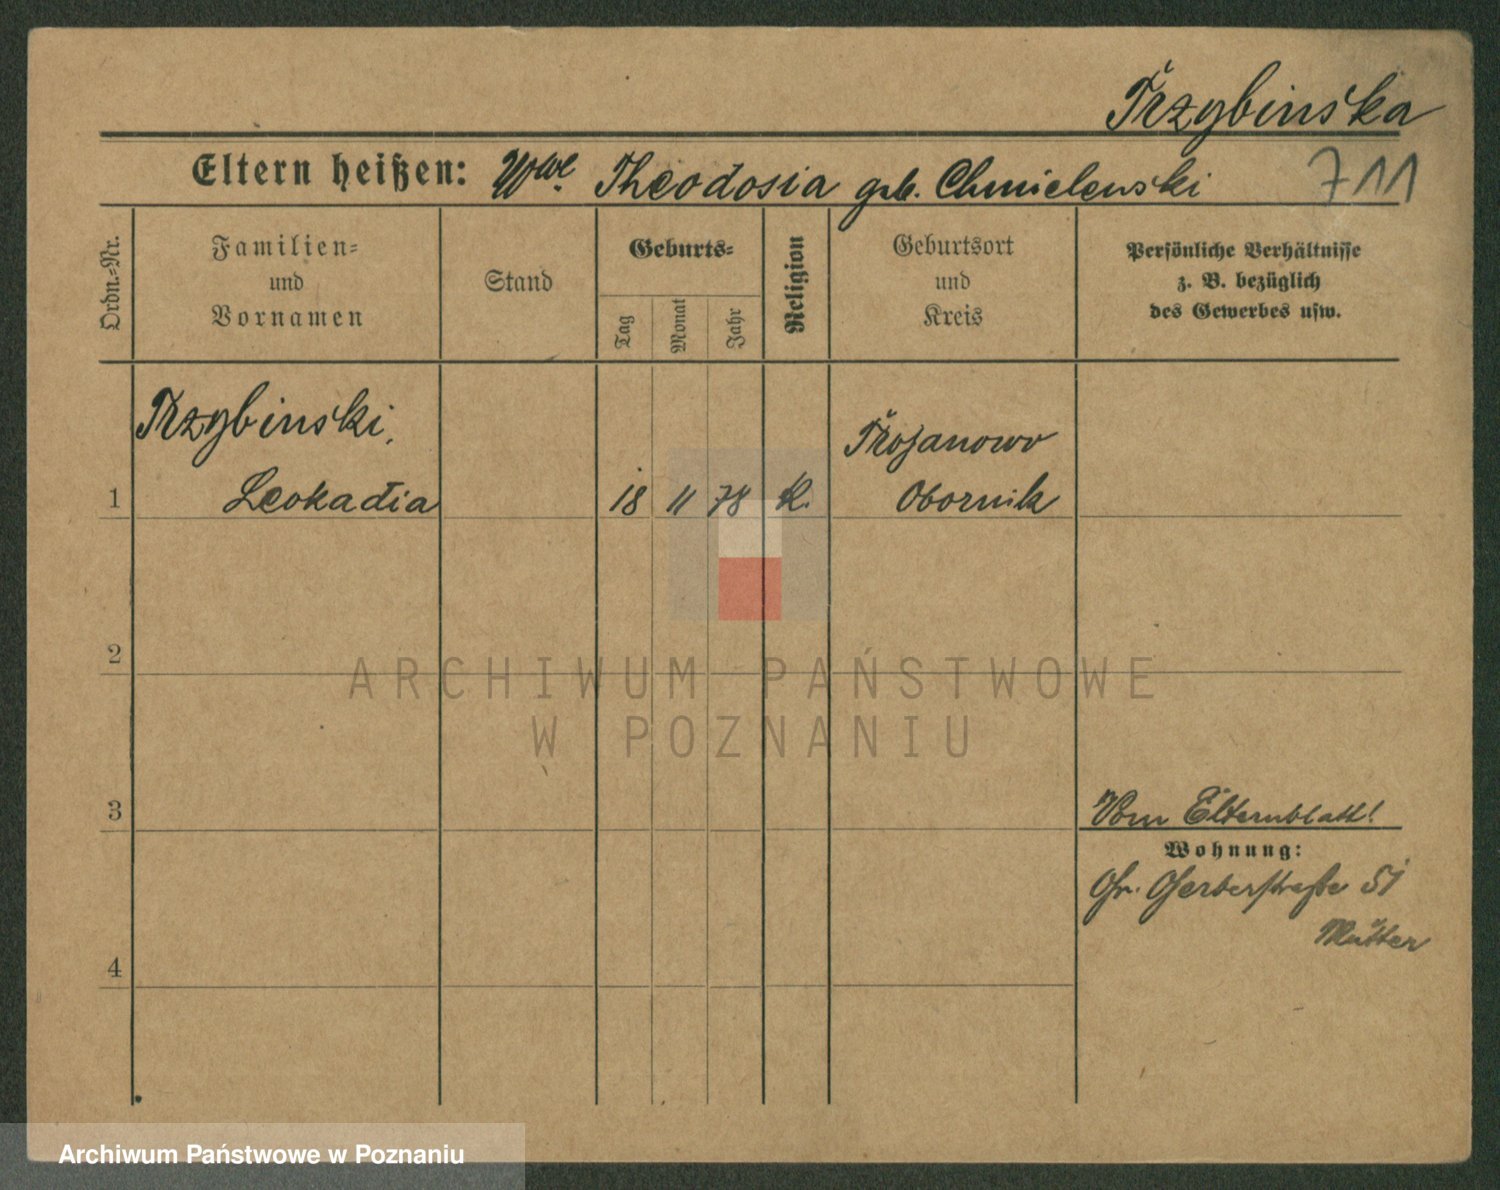 Trzybinska
Eltern heißen: Wwe. Theodosia geb. Chmielewski
711
Ordn.-Nr.
Familien-
und
Vornamen
Stand
Geburts-
Tag
Monat
Jahr
Religion
Geburtsort
und
Kreis
Persönliche Verhältnisse
z. B. bezüglich
des Gewerbes usw.
Trzybinski,
1 Leokadia 18 11 78 K.
Trojanowo
Obornik
2
ARCHIWUM PAŃSTWOWE
W POZNANIU
3
Vom Elternblatt!
Wohnung:
Gr. Gerberstraße 51
Mutter
4
Archiwum Państwowe w Poznaniu